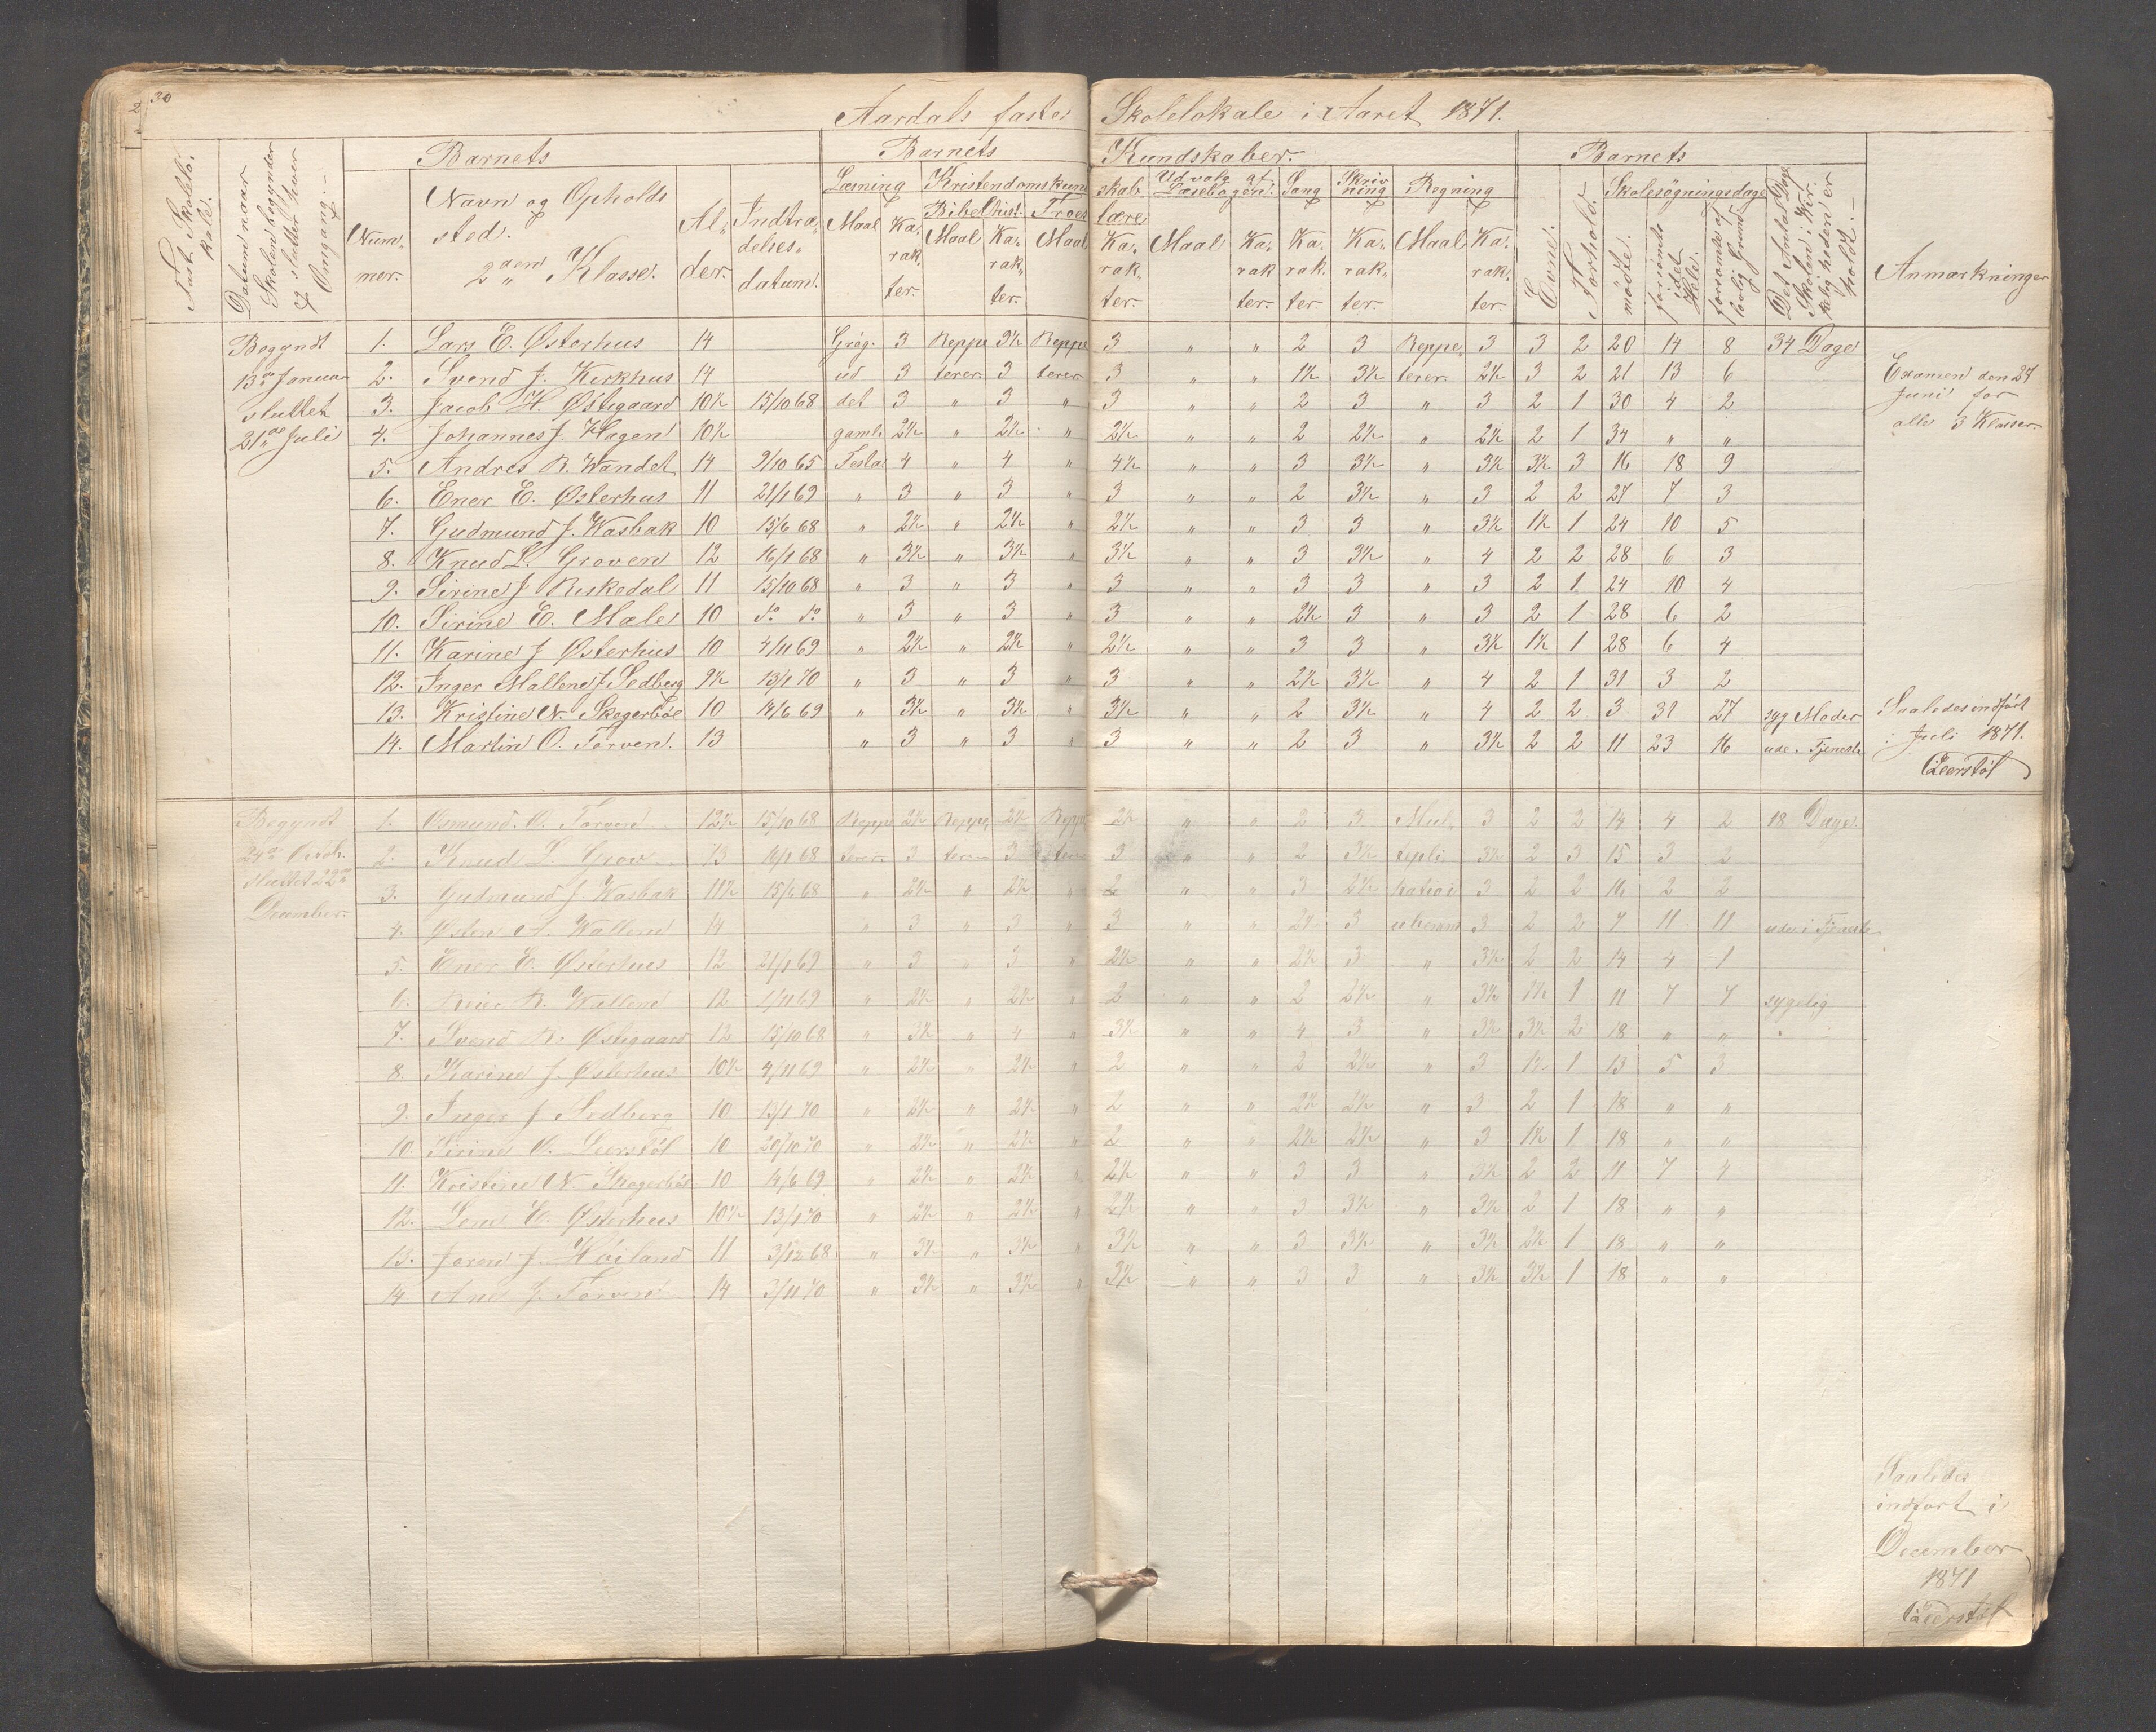 30
Aardals faste Skolelokale i Aaret 1871.
Fast Skolelokale.
Datum naar Skolen begynder og slutter hver Omgang.
Barnets
Barnets Kundskaber.
Barnets
Anmærkninger
Nummer.
Navn og Opholdssted.
2den Klasse.
Alder.
Indtrædelsesdatum.
Læsning
Kristendomskundskab.
Udvalg af Læsebogen.
Sang
Skrivning
Regning
Evne.
Forhold.
Skolesøgningsdage
Maal Karakter.
Bibelhist. Troeslære
Maal Karakter. Maal Karakter. Maal Karakter. Karakter Karakter. Maal Karakter.
mødte.
forsømte i det Hele.
forsømte af lovlig Grund
Det Antal Dage Skolen i Virkeligheden er holdt.
Begyndt 13de Januar sluttet 21de Juli
1. Lars E. Østerhus 14 Grøg. 3 Reppe 3½ Reppe 3 " " 2 3 Reppe 3 3 2 20 14 8 34 Dage
2. Svend J. Kirkhus 14 ud 3 terer 3 terer 3 " " 1½ 3½ terer 2½ 3 2 21 13 6
3. Jacob H. Østigaard 10½ 15/10 68 det 3 " 3 " 3 " " 2 3 " 3 2 1 30 4 2
4. Johannes J. Hagen 10½ gaml. 2½ " 2½ " 2½ " " 2 2½ " 2½ 2 1 34 " "
5. Andres R. Wandet 14 9/10 65 Testa 4 " 4 " 4½ " " 3 3½ " 3½ 3½ 3 16 18 9
6. Ener E. Østerhus 11 21/1 69 " 3 " 3 " 3 " " 2 3½ " 3 2 2 27 7 3
7. Gudmund J. Wasbak 10 15/6 68 " 2½ " 2½ " 2½ " " 3 3 " 3½ 1½ 1 24 10 5
8. Knud L. Groven 12 16/1 68 " 3½ " 3½ " 3½ " " 3 3½ " 4 2 2 28 6 3
9. Sirine J Riskedal 11 15/10 68 " 3 " 3 " 3 " " 3 3 " 3 2 1 24 10 4
10. Sirine E. Mæle 10 do do " 3 " 3 " 3 " " 2½ 3 " 3 2 1 28 6 2
11. Karine J Østerhus 10 4/11 69 " 2½ " 2½ " 2½ " " 3 3 " 3½ 1½ 1 28 6 4
12. Inger Mallene J. Sedberg 9½ 13/1 70 " 3 " 3 " 3 " " 2½ 3½ " 4 2 1 31 3 2
13. Kristine N. Skogerbøe 10 14/6 69 " 3½ " 3½ " 3½ " " 2 3½ " 4 2 2 3 31 27 syg Moder
14. Martin O. Torven. 13 " 3 " 3 " 3 " " 2 3 " 3½ 2 2 11 23 16 ude i Tjeneste
Examen den 27
Juni for
alle 3 Klasser.
Saaledes indført
i Juli 1871.
Leerstøl
Begyndt 24de Octob. sluttet 22de December.
1. Osmund O. Torven 12½ 15/10 68 Reppe 2½ Reppe 2½ Reppe 2½ " " 2 3 Mul 3 2 2 14 4 2 18 Dage.
2. Knud L. Grov 13 16/1 68 terer 3 terer 3 terer 3 " " 2 3½ tepli 3½ 2 3 15 3 2
3. Gudmund J. Wasbak 11½ 15/6 68 " 2½ " 2½ " 2 " " 3 2½ kation 3 2 2 16 2 2
4. Østen A. Wallend 14 " 3 " 3 " 3 " " 2½ 3 ubenævnt 3 2 2 7 11 11 ude i Tjeneste
5. Ener E. Østerhus 12 21/1 69 " 3 " 3 " 2½ " " 2½ 3 " 3½ 2 2 14 4 1
6. R. Wallend 12 1/11 69 " 2½ " 2½ " 2 " " 2 2½ " 3½ 1½ 1 11 7 7 sygelig
7. Svend R. Østigaard 12 15/10 68 " 3½ " 4 " 3½ " " 4 3 " 3½ 3½ 2 18 " "
8. Karine J. Østerhus 10½ 4/11 69 " 2½ " 2½ " 2 " " 2 2½ " 3 1½ 1 13 5 3
9. Inger J Sedberg 10 13/1 70 " 2½ " 2½ " 2 " " 2½ 2½ " 3 2 1 18 " "
10. Sirine O. Leerstøl 10 20/10 70 " 2½ " 2½ " 2 " " 2½ 2½ " 3 1½ 1 18 " "
11. Kristine N. Skogerbøe 10 14/6 69 " 2½ " 2½ " 2½ " " 3 3 " 3½ 2 2 11 7 4
12. Lene E. Østerhus 10½ 13/1 70 " 2½ " 2½ " 2½ " " 3 3½ " 3½ 2 1 18 " "
13. Joren J. Høiland 11 3/12 68 " 3½ " 3½ " 3½ " " 3 3½ " 3½ 2½ 1 18 " "
14 Ane J. Torven 14 3/11 70 " 3½ " 3½ " 3½ " " 3 3 " 3½ 3½ 1 18 " "
Saaledes
indført i
December
1871
Leerstøl